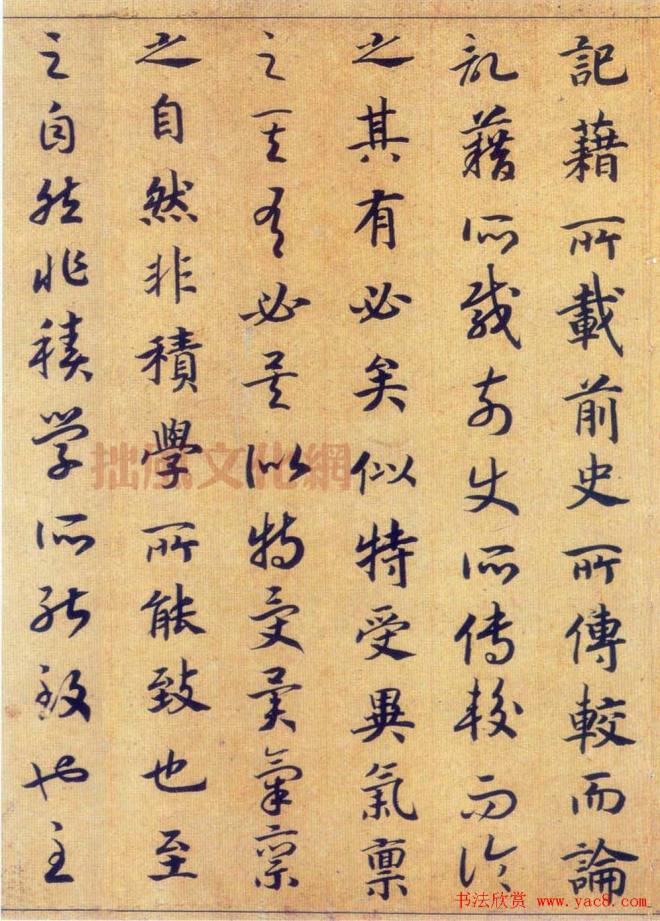 記藉所載前史所傳較而論
記藉所載前史所傳較而論
之其有必矣似特受異氣稟
之其有必矣似特受異氣稟
之自然非積學所能致也至
之自然非積學所能致也至
拙風文化網
书法欣赏 www.yac8.com